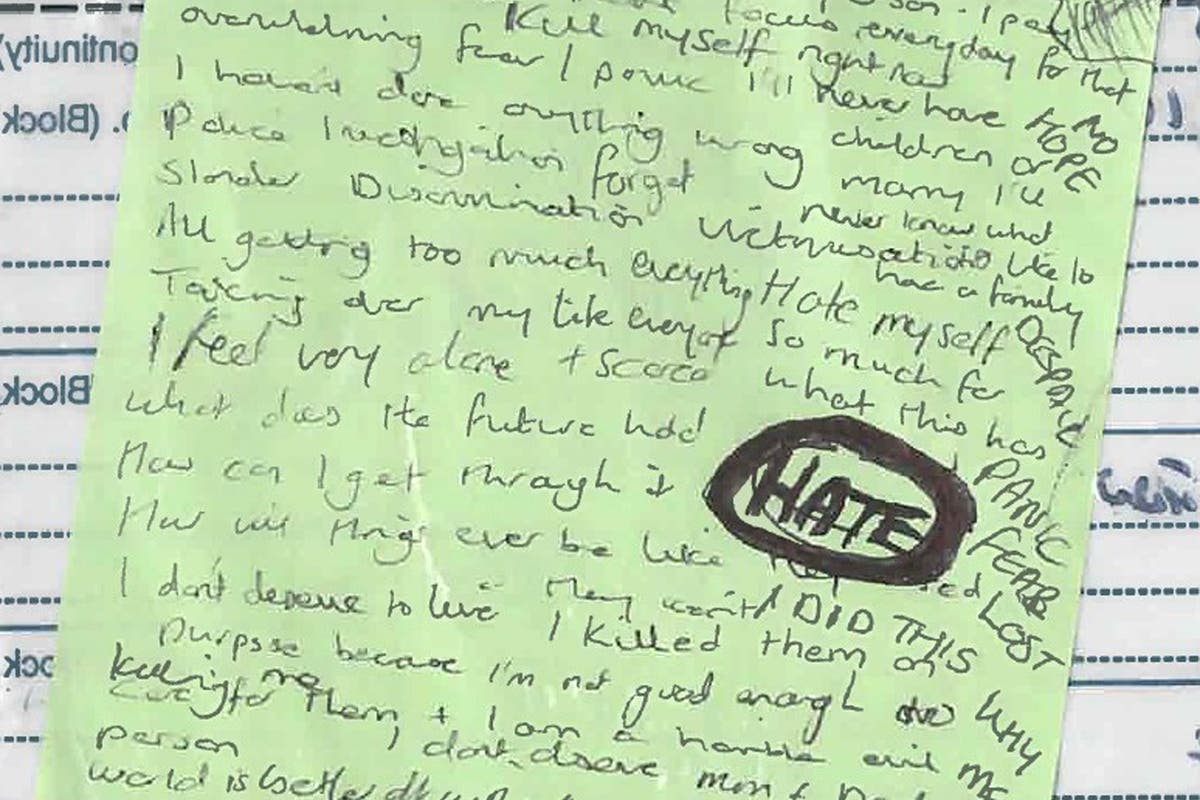 Kill myself right now
focus everyday for that
overwhelming fear / panic I'll never have
I haven't done anything wrong children or
marry I'll
Police Investigation forget never know what
Slander Discrimination Victimisation like to
have a family
All getting too much everything Hate myself
Taking over my life everyday so much for
I feel very alone + scared what this has
What does the future hold
How can I get through it
How will things ever be like they
I don't deserve to live They won't I DID THIS
I killed them on
purpose because I'm not good enough to
care for them + I am a horrible evil
person I don't deserve mum + Dad
world is better off
HATE
NO
HOPE
DESPAIR
PANIC
FEAR
LOST
WHY
ME
killing me
ontinuity)
. (Block
Block
ock